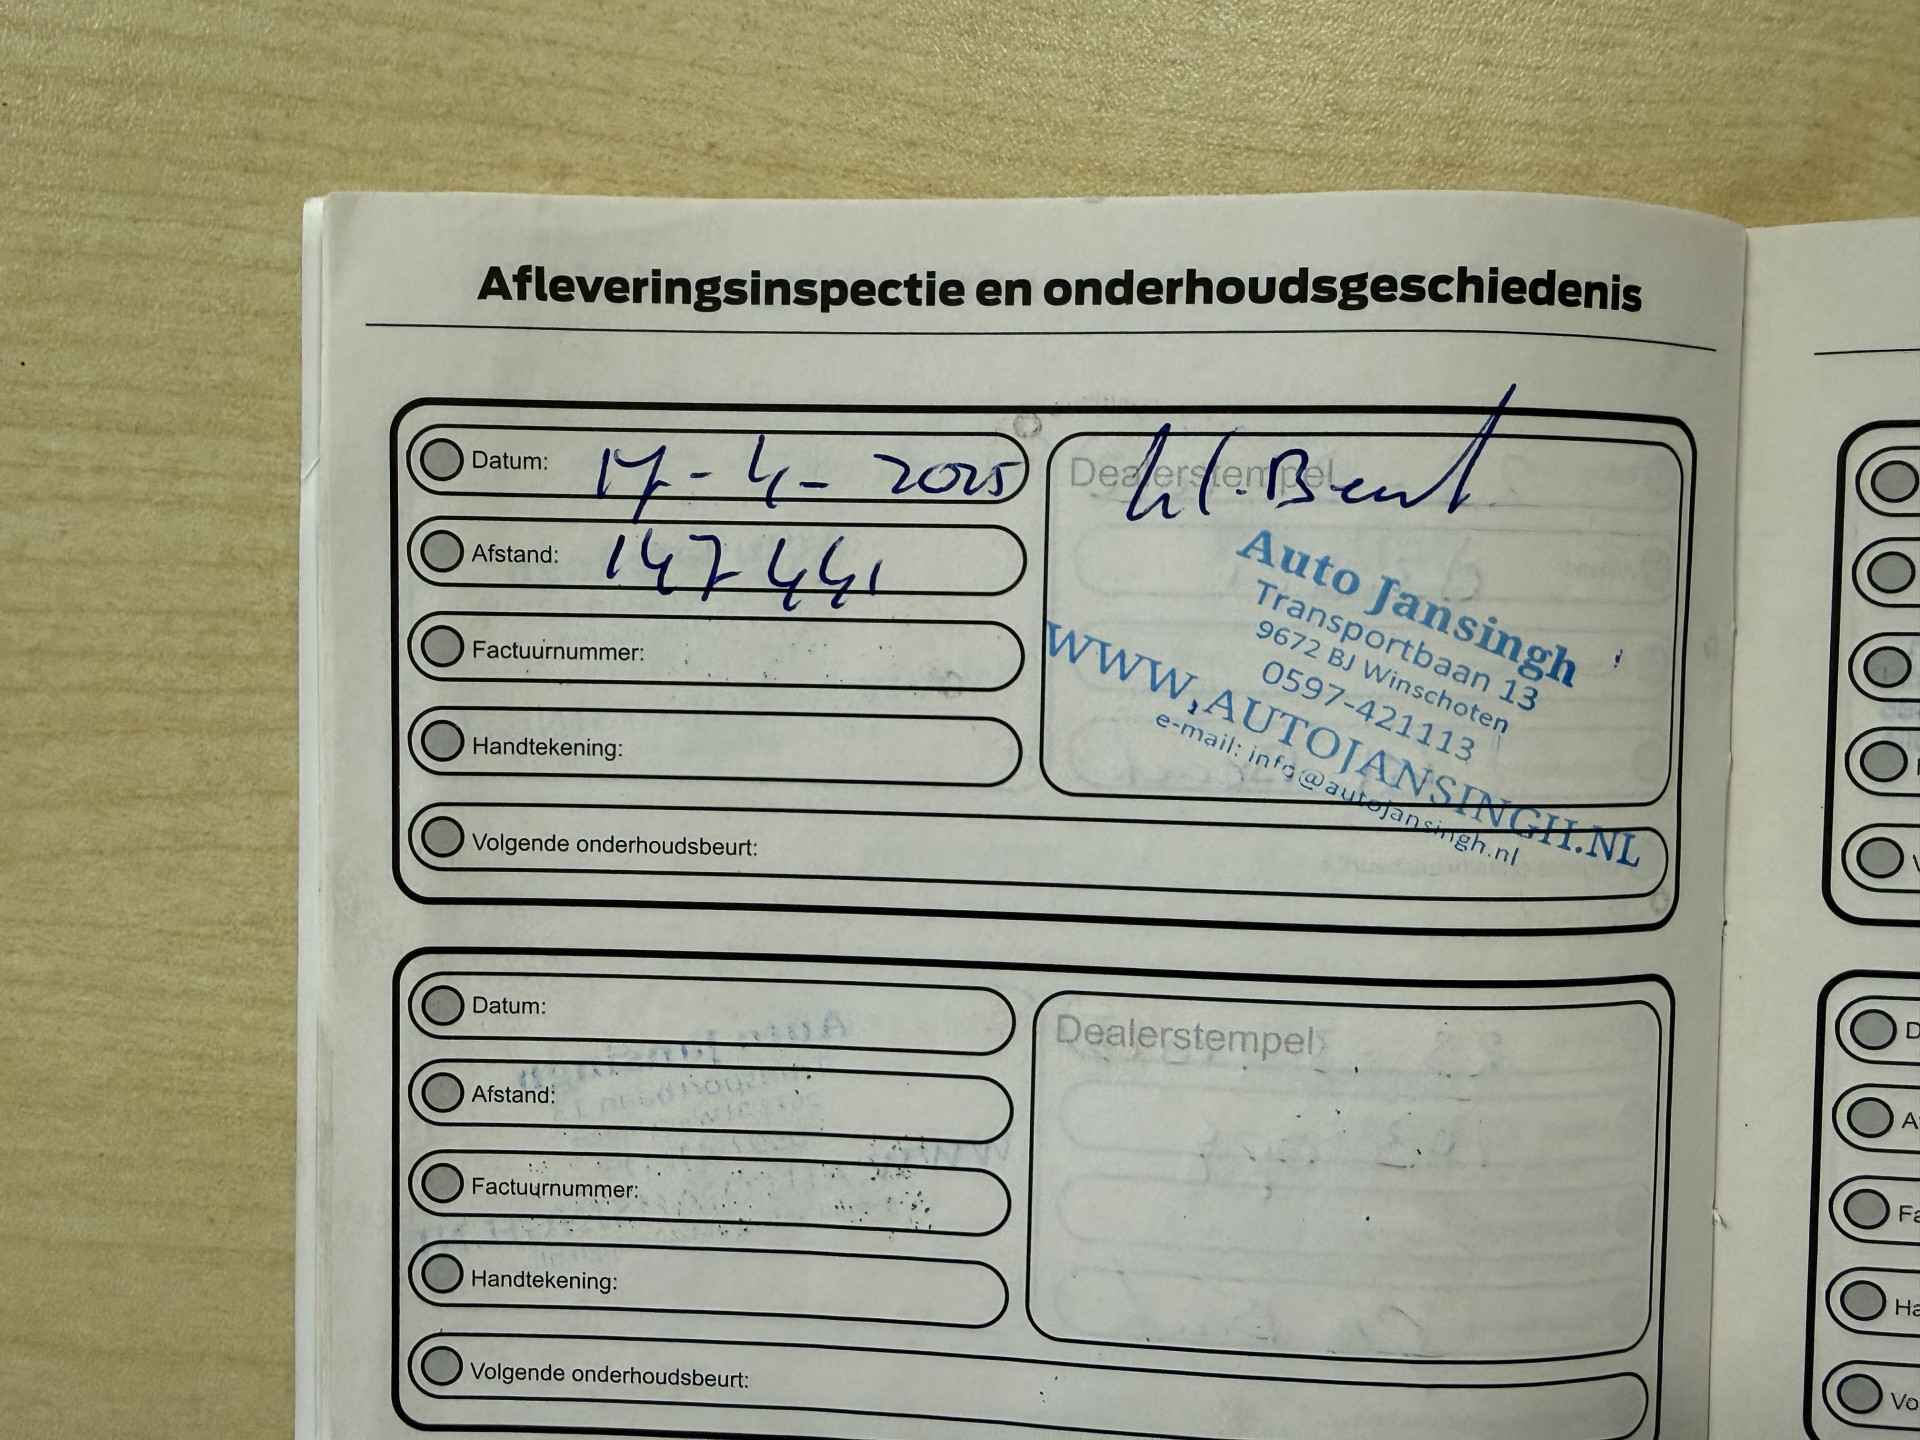 Afleveringsinspectie en onderhoudsgeschiedenis
Datum: 17-4-2025
Afstand: 147441
Factuurnummer:
Handtekening:
Volgende onderhoudsbeurt:
Dealerstempel
Kl. Beurt
Auto Jansingh
Transportbaan 13
9672 BJ Winschoten
0597-421113
WWW.AUTOJANSINGH.NL
e-mail: info@autojansingh.nl
Datum:
Afstand:
Factuurnummer:
Handtekening:
Volgende onderhoudsbeurt:
Dealerstempel